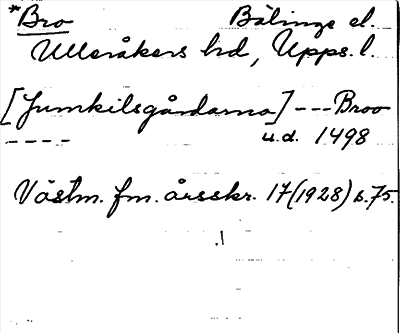 *Bro Bälinge el.
Ulleråkers hd, Upps. l.
[Jumkilsgårdarna] --- Broo
---- u.d. 1498
Västm. fm. årsskr. 17 (1928) s. 75.
.1